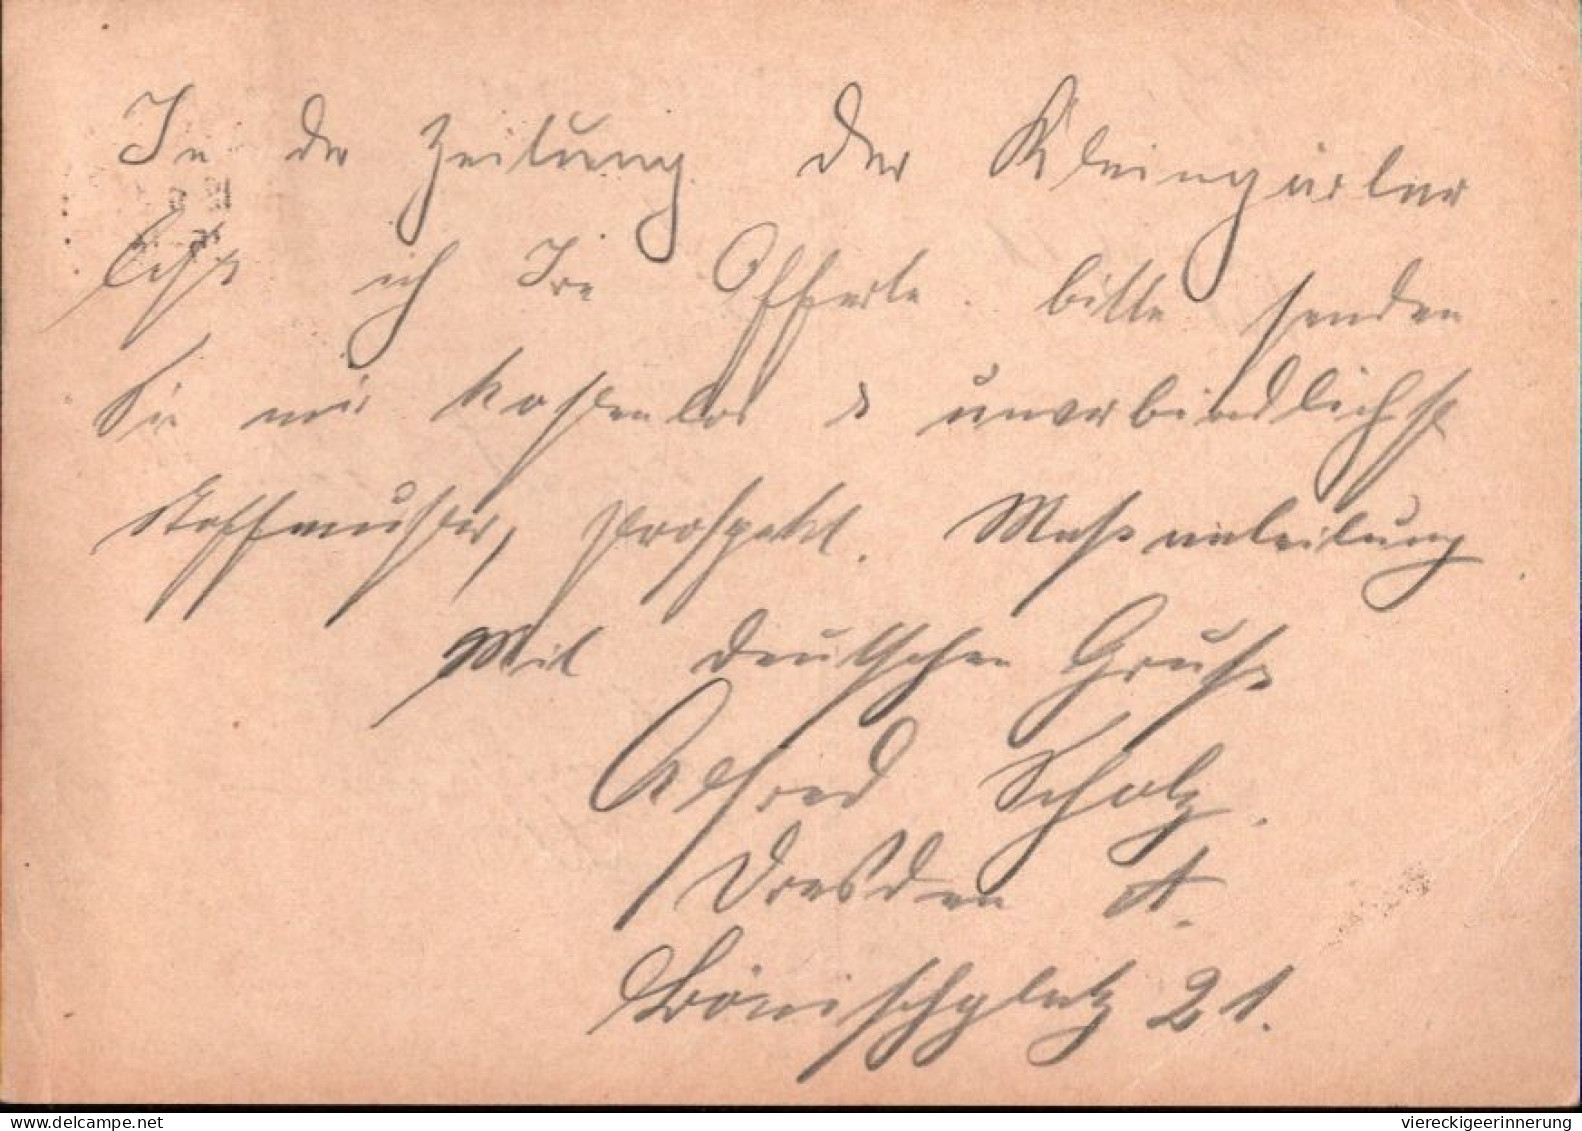 In der Zeitung der Kleingärtner
ich Ire Offerte. bitte senden
Sie mir kostenlos & unverbindlichst
Stoffmuster, Prospekt. Massanleitung
Mit deutschen Gruss
Alfred Scholz.
Dresden A.
Bönischplatz 21.
viereckigeerinnerung